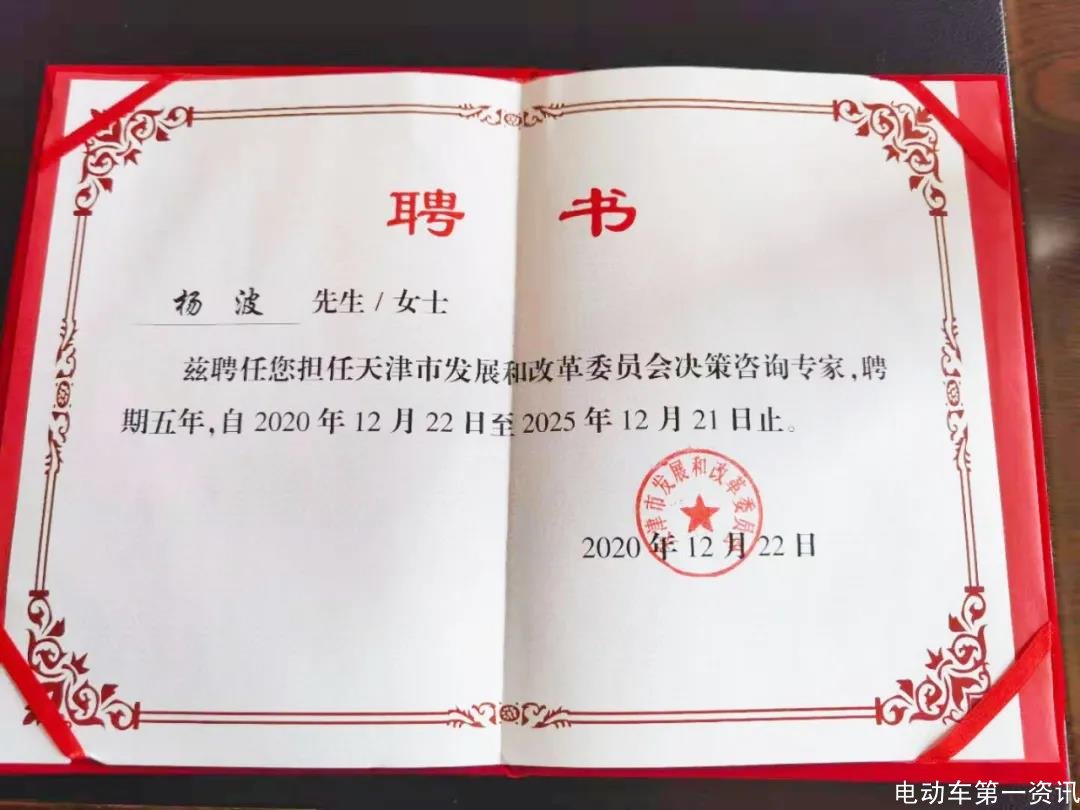 聘 书
杨 波 先生 / 女士
兹聘任您担任天津市发展和改革委员会决策咨询专家，聘
期五年，自 2020 年 12 月 22 日至 2025 年 12 月 21 日止。
津市发展和改革委员
2020 年 12 月 22 日
电动车第一资讯